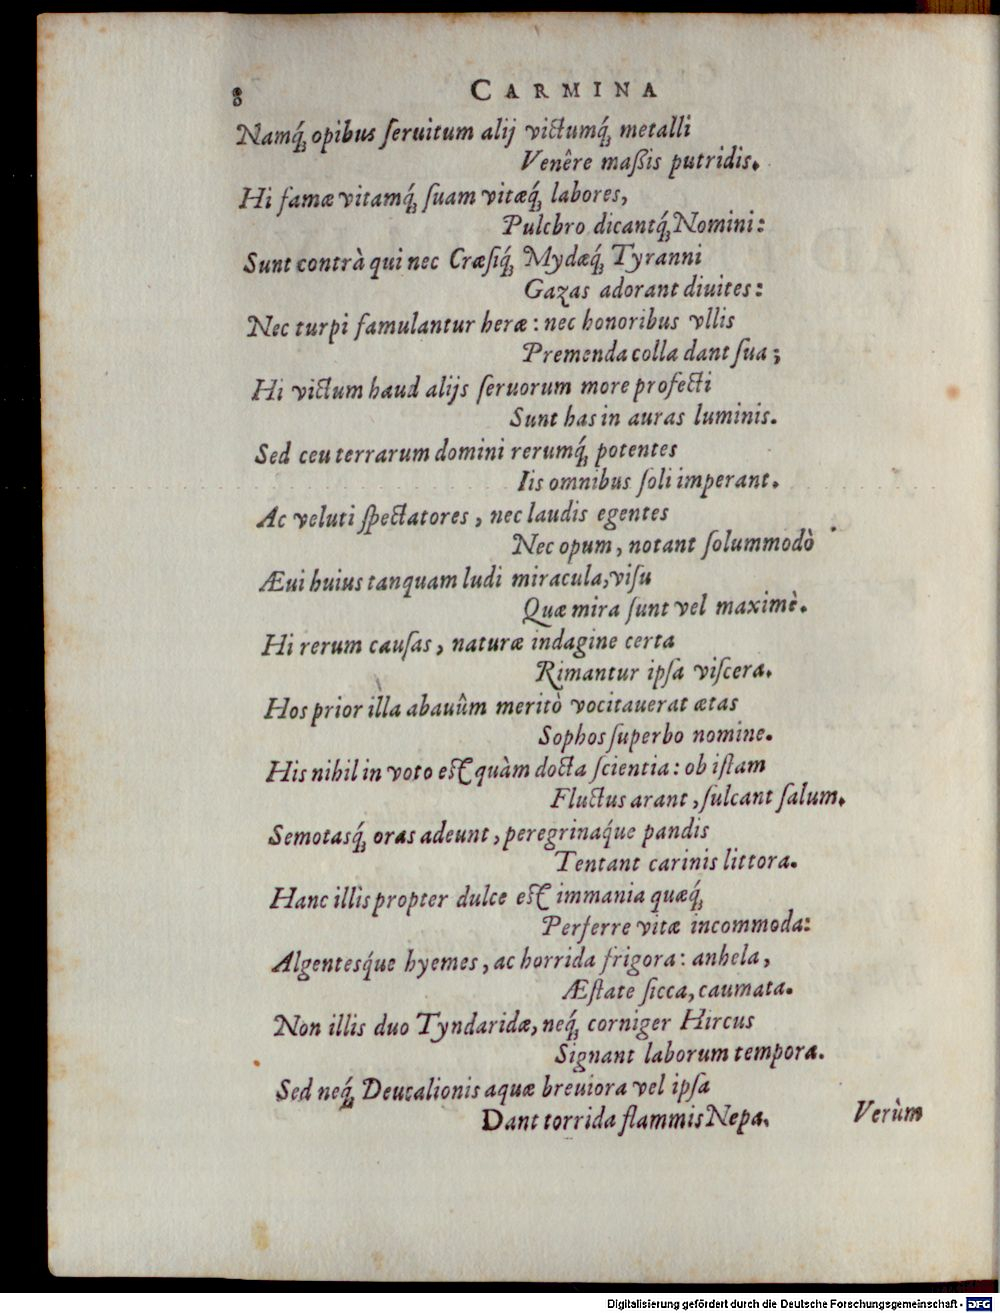 8 CARMINA
Namq́ꝫ opibus ſeruitum alij victumq́ꝫ metalli
Venêre maßis putridis.
Hi famæ vitamq́ꝫ ſuam vitæq́ꝫ labores,
Pulchro dicantq́ꝫ Nomini:
Sunt contrà qui nec Cræſiq́ꝫ Mydæq́ꝫ Tyranni
Gazas adorant diuites:
Nec turpi famulantur heræ: nec honoribus vllis
Premenda colla dant ſua;
Hi victum haud alijs ſeruorum more profecti
Sunt has in auras luminis.
Sed ceu terrarum domini rerumq́ꝫ potentes
Iis omnibus ſoli imperant.
Ac veluti ſpectatores, nec laudis egentes
Nec opum, notant ſolummodò
Æui huius tanquam ludi miracula, viſu
Quæ mira ſunt vel maximè.
Hi rerum cauſas, naturæ indagine certa
Rimantur ipſa viſcera.
Hos prior illa abauûm meritò vocitauerat ætas
Sophos ſuperbo nomine.
His nihil in voto eſt quàm docta ſcientia: ob iſtam
Fluctus arant, ſulcant ſalum.
Semotasq́ꝫ oras adeunt, peregrinaq́ue pandis
Tentant carinis littora.
Hanc illis propter dulce eſt immania quæq́ꝫ
Perferre vitæ incommoda:
Algentesq́ue hyemes, ac horrida frigora: anhela,
Æſtate ſicca, caumata.
Non illis duo Tyndaridæ, neq́ꝫ corniger Hircus
Signant laborum tempora.
Sed neq́ꝫ Deucalionis aquæ breuiora vel ipſa
Dant torrida flammis Nepa.
Verùm
Digitalisierung gefördert durch die Deutsche Forschungsgemeinschaft - DFG